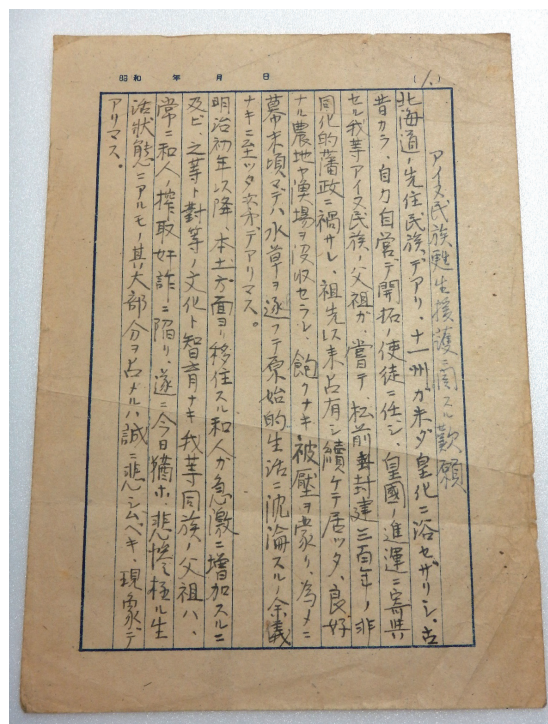 昭和 年 月 日
(1.)
アイヌ民族甦生援護ニ関スル歎願
北海道ノ先住民族デアリ、十一州ガ未ダ皇化ニ浴セザリシ、古
昔カラ、自力自営デ開拓ノ使徒ニ任ジ、皇國ノ進運ニ寄与
セル我等アイヌ民族ノ父祖ガ、嘗テ、松前封建三百年ノ非
同化的藩政ニ禍サレ、祖先以来占有シ續ケテ居ッタ、良好
ナル農地ヤ漁場ヲ没収セラレ、飽クナキ被壓ヲ蒙リ、為メニ
幕末頃マデハ水草ヲ逐フテ原始的生活ニ沈淪スルノ余義
ナキニ至ッタ次第デアリマス。
明治初年以降、本土方面ヨリ移住スル和人ガ急激ニ増加スルニ
及ビ、之等ト對等ノ文化ト智育ナキ我等同族ノ父祖ハ、
常ニ和人ノ搾取奸詐ニ陥リ、遂ニ今日猶ホ、悲惨極ル生
活状態ニアルモノ其大部分ヲ占メルハ誠ニ悲シムベキ、現象デ
アリマス。